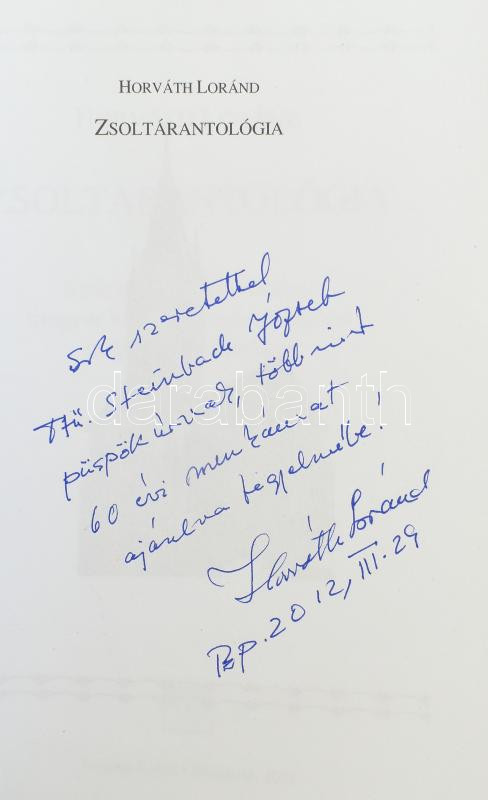 HORVÁTH LORÁND
ZSOLTÁRANTOLÓGIA
Sok szeretettel
Ftű. Steinbach József
püspök úrnak, több mint
60 évi munkámat
ajánlva figyelmébe!
Horváth Loránd
Bp. 2012, III. 29
darabanth